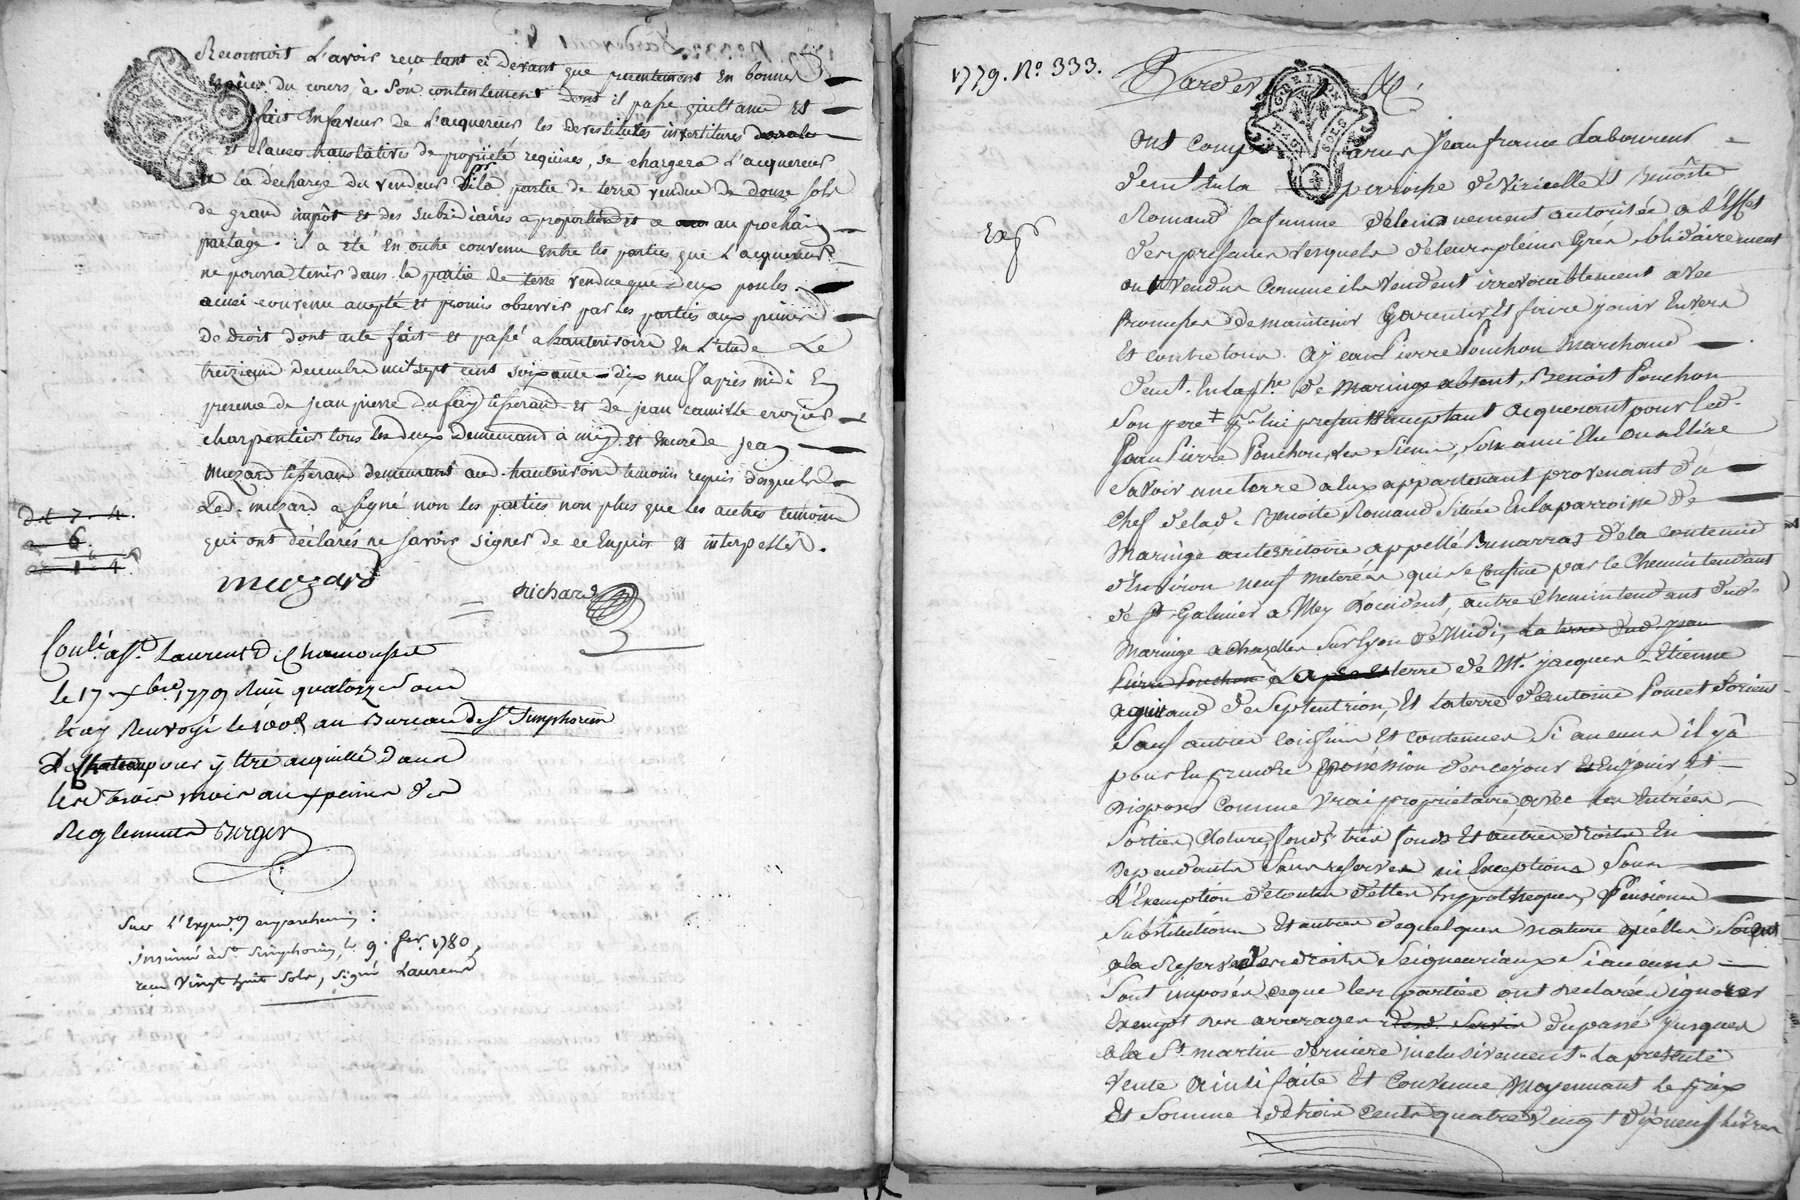 Reconnoit l'avoir recu tant ci devant que presentement en bonnes
espèces du cours à son contentement dont il passe quittance et
fait en faveur de l'acquereur les devestitutes investitures
et clauses translatives de proprieté requises, se chargera l'acquereur
a la decharge du vendeur pr la partie de terre vendue de douze sols
de grand impôt et des subsidiaires a proportion et ce au prochain
partage. il a été en outre convenu entre les parties que l'acquereur
ne pourra tenir dans la partie de terre vendue que deux poules.
ainsi convenu accepté et promis observer par les parties aux peines
de droit dont acte fait et passé a hauterivoire en l'étude Le
treizieme decembre mil sept cent soixante-dix neuf après midi En
presence de jean pierre dufay tisserand et de jean camille crozier
charpentier tous les deux demeurant à meys et encore de jean
muzard tisserand demeurant aud. hauterivoire temoins requis desquels
Led. muzard a signé non les parties non plus que les autres temoins
qui ont déclarés ne savoir signer de ce enquis et interpellés.
d.t 7. 4.
6.
1 4
muzard
Richard
Conlé. a St. Laurent de Chamousset
le 17 Xbre 1779 Reçu quatorze sous
et ay Renvoyé le 100e au Bureau de St Simphorien
pour y être acquitté dans
les trois mois aux peines des
Reglements Berger
Sur l'Expen. en parchemin:
insinué à St Simphorien, le 9. fer. 1780,
reçu vingt huit sols, signé Laurend
1779. No 333.
Pardev
Exp
Ont comparus Jean france Laboureur
demt. en la parroisse de viricelle et Benoîte
Romand sa femme deluiduement autorisée a l'effet
des presentes lesquels de leurs pleins grés solidairement
ont vendus comme ils vendent irrevocablement avec
Promesses de maintenir Garentir et faire jouir Envers
Et contre tous. a jean Pierre Ponchon Marchand
demt. en la p.sse de Maringe absent, Benoit Ponchon
son pere pr. lui present acceptant acquerant pour led.
Jean Pierre Ponchon, les siens, son ami Elu ou a Elire
Savoir une terre a eux appartenant provenant du
Chef de lad. Benoite Romand située en la parroisse de
Maringe au territoire appellé Bunarras de la contenue
d'environ neuf meterées qui se confine par le chemin tendant
de St. Galmier a Mey d'occident, autre chemin tendant dud.
Maringe a Chazelles sur lyon de midi, La terre dud. jean
Pierre Ponchon terre de Mr. jacques-Etienne
aguiraud de septentrion, Et la terre d'antoine Poncet d'orient
Sauf autres confins Et contenues si aucuns il y a
pour en prendre possession de ce jour en jouir Et
disposer comme vrai proprietaire, avec les Entrées
Sorties, cloture, fonds, tres fonds Et autres droits en
dependants sans reserves ni Exceptions sous
l'Exemption de toutes dettes hypotheques, Pensions
Substitutions Et autres de quelques nature quelles soient
a la Reserve des droits Seigneuriaux si aucuns
Sont imposés ce que les parties ont declarés ignorer
Exempt des arrerages du passé jusques
a la St martin derniere inclusivement. La presente
vente ainsi faite Et convenue moyennant le prix
et somme de trois cents quatre vingt dixneuf livres